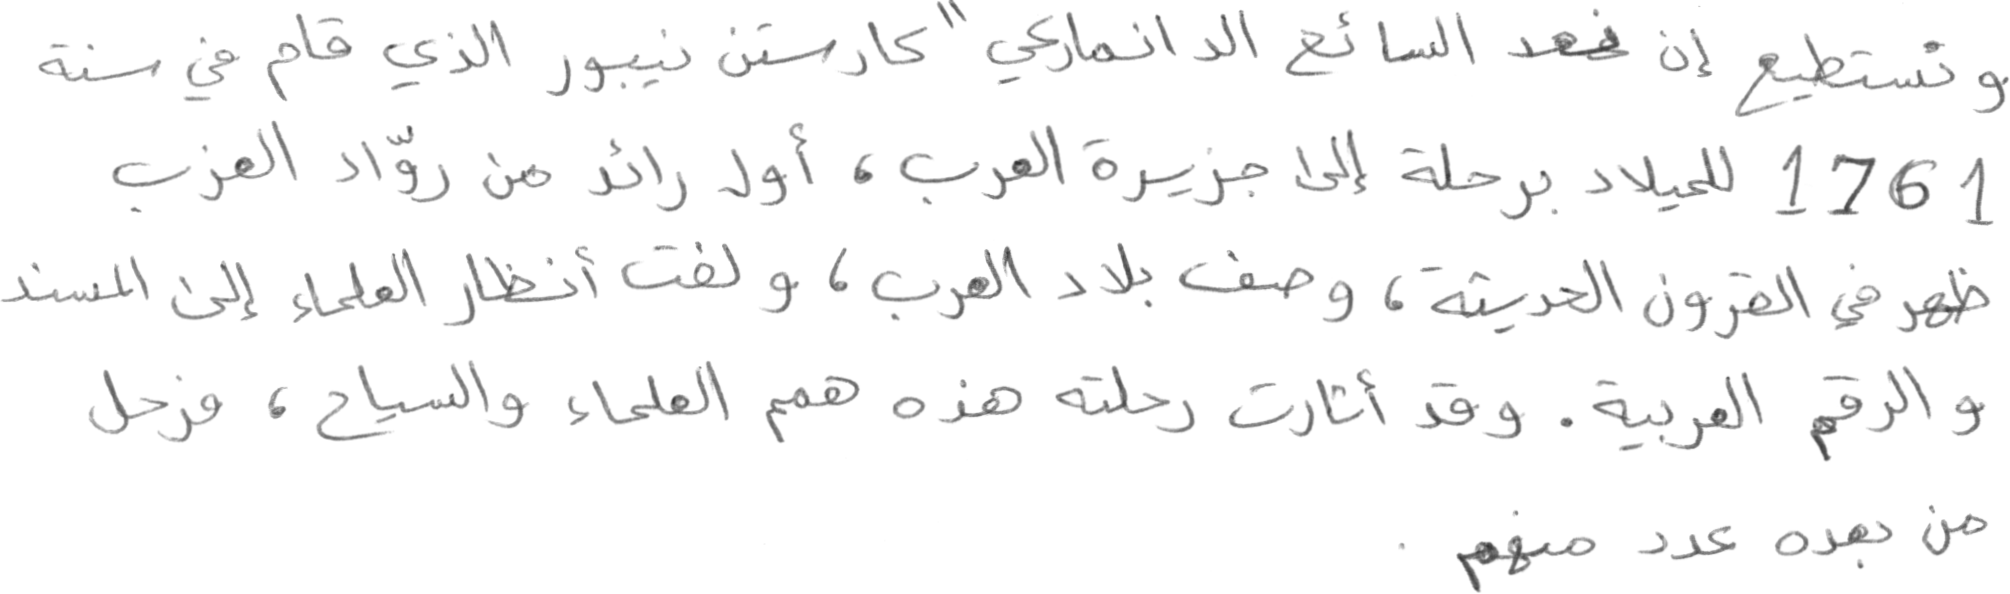 ونستطيع إن نعد السائح الدانماركي "كارستن نيبور الذي قام في سنة
1761 للميلاد برحلة إلى جزيرة العرب، أول رائد من روّاد الغرب
ظهر في القرون الحديثة، وصف بلاد العرب، ولفت أنظار العلماء إلى المسند
والرقم العربية. وقد أثارت رحلته هذه همم العلماء والسياح، فرحل
من بعده عدد منهم.